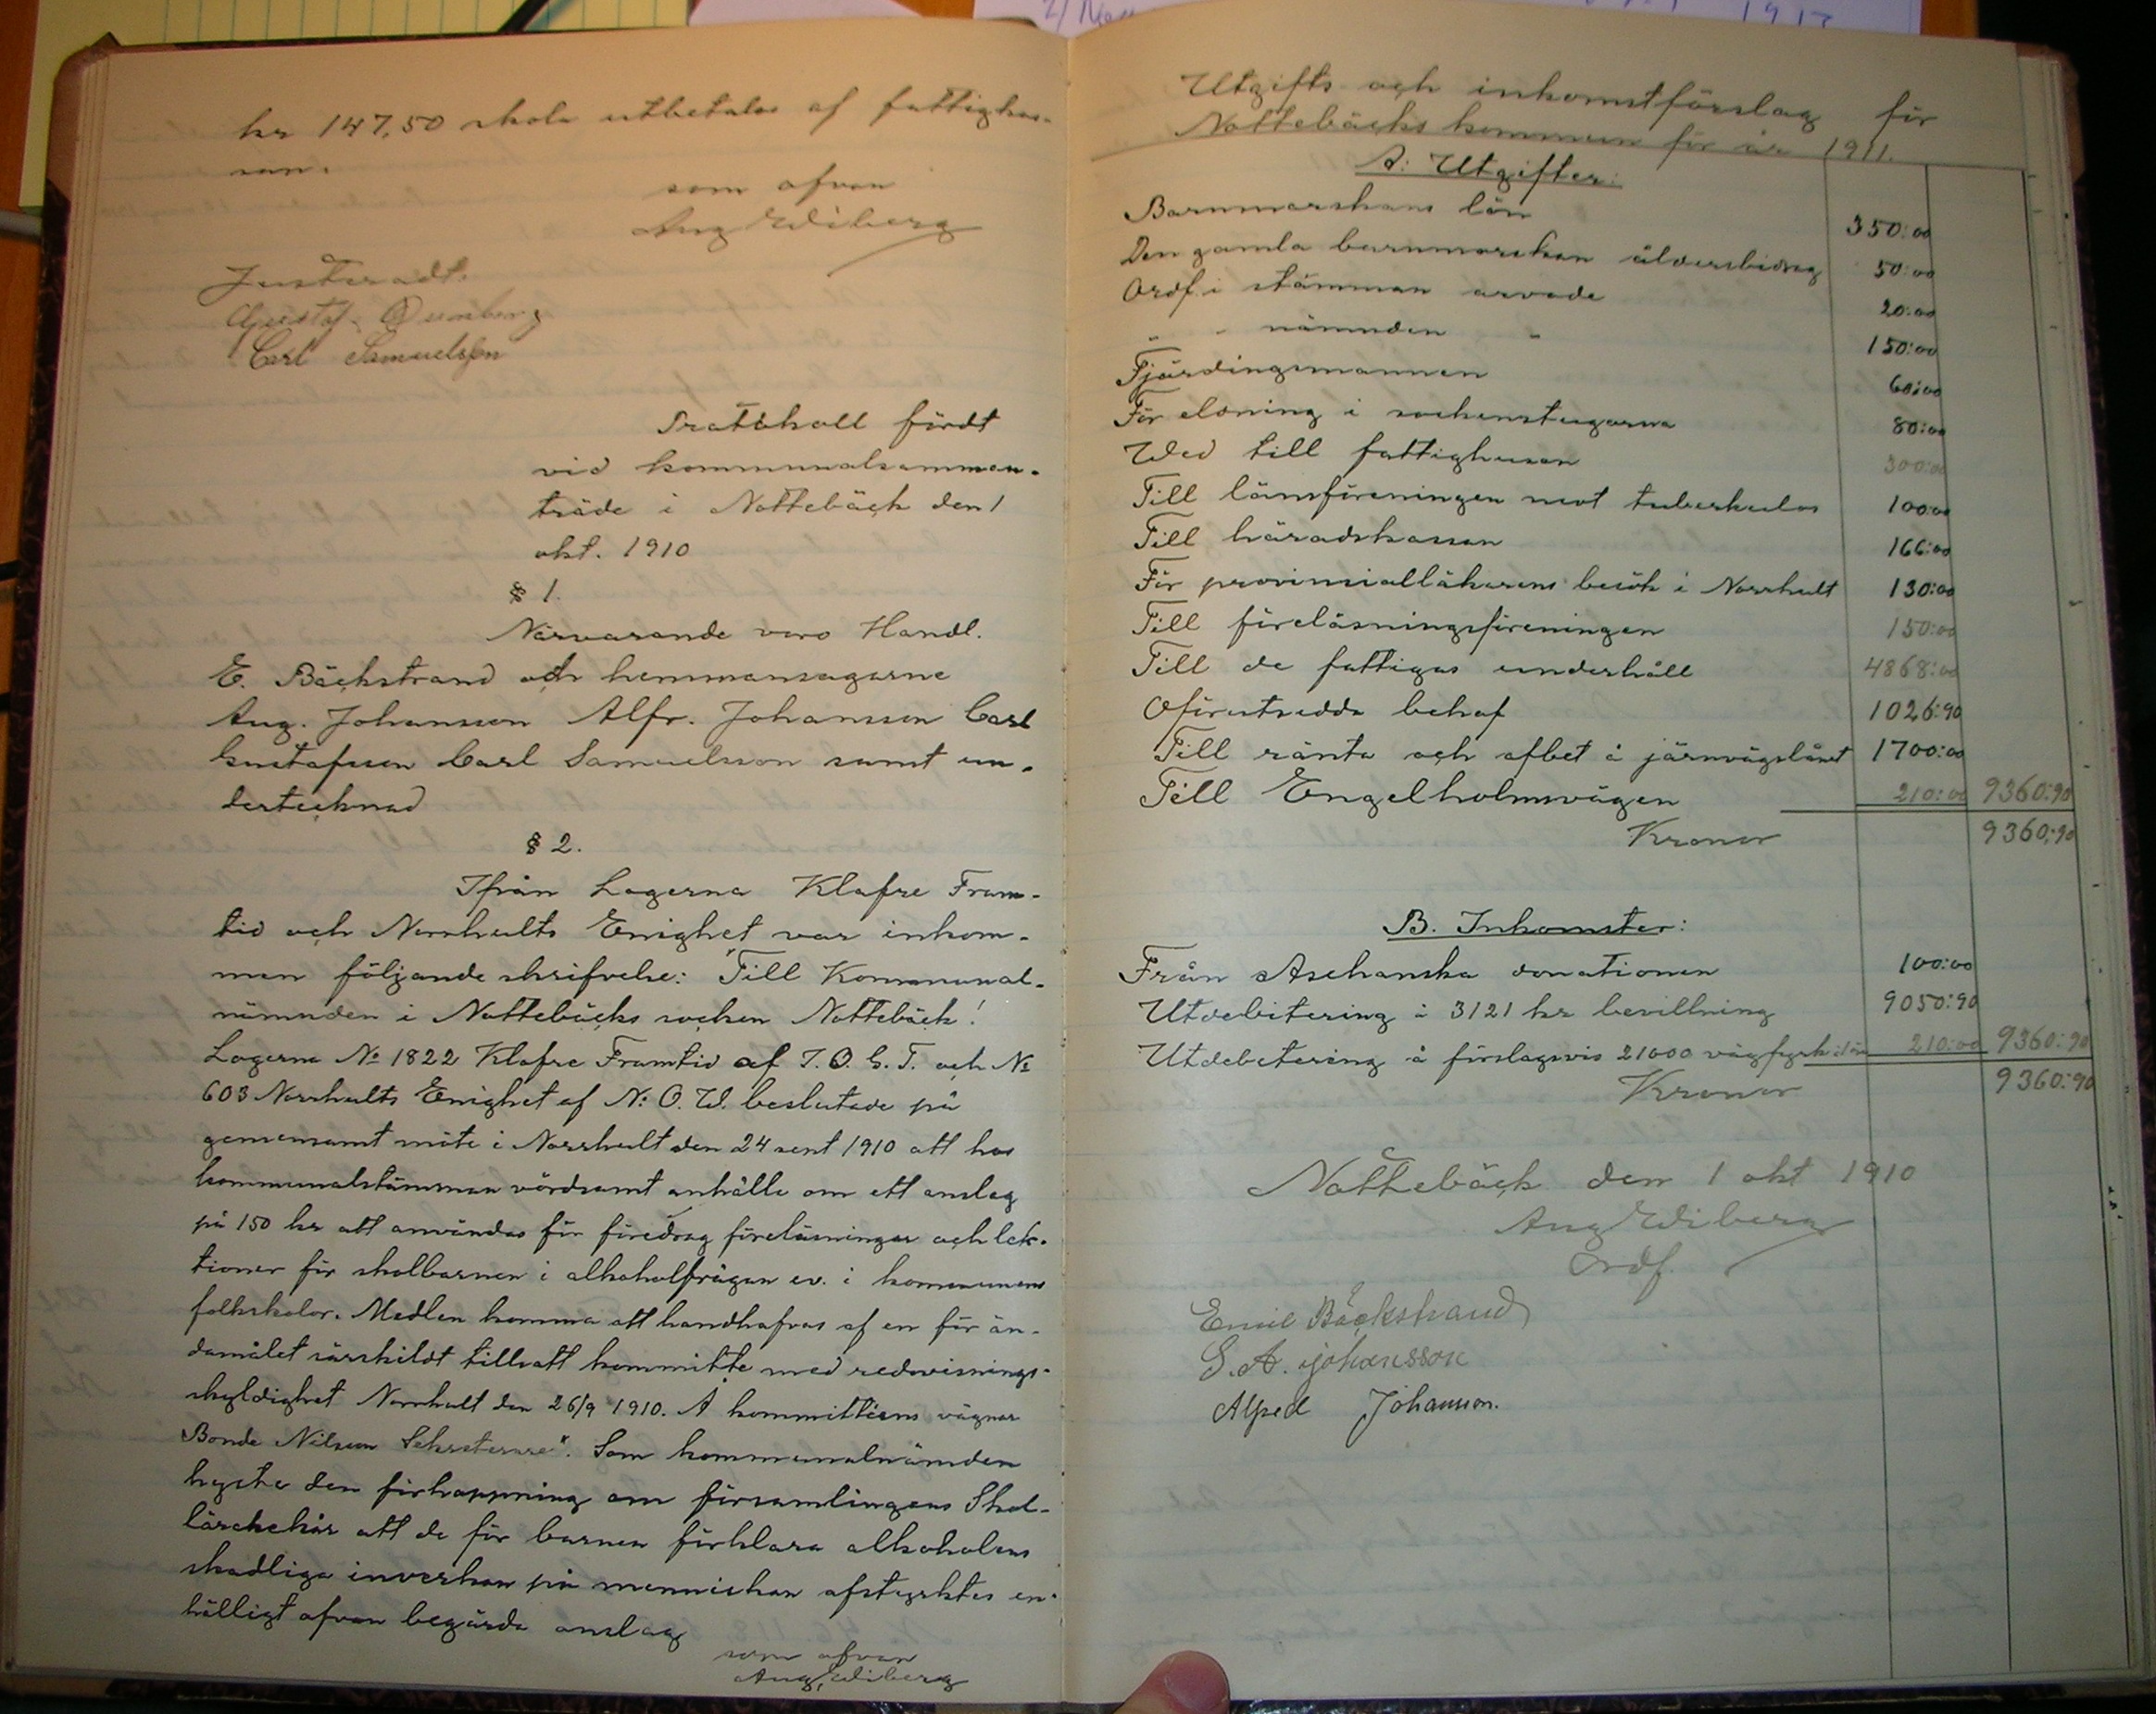 kr 147,50 skola utbetalas af fattigkas-
san.
som ofvan
Aug Wiberg
Justeradt.
Gustaf
Carl Samuelsson
Protokoll fördt
vid kommunalsamman-
träde i Nottebäck den 1
okt. 1910
§ 1.
Närvarande voro Handl.
E. Bäckstrand och hemmansegarne
Aug. Johansson Alfr. Johansson Carl
Gustafsson Carl Samuelsson samt un-
dertecknad
§ 2.
Ifrån Logerna Klafre Fram-
tid och Norrhults Enighet var inkom-
men följande skrifvelse: "Till Kommunal-
nämnden i Nottebäcks socken Nottebäck!
Logerna No 1822 Klafre Framtid af I.O.G.T. och No
603 Norrhults Enighet af N.O.W. beslutade på
gemensamt möte i Norrhult den 24 sept 1910 att hos
kommunalstämman vördsamt anhålla om ett anslag
på 150 kr att användas för föredrag föreläsningar och lek-
tioner för skolbarnen i alkoholfrågan ev. i kommunens
folkskolor. Medlen komma att handhafvas af en för än-
damålet särskildt tillsatt kommitte med redovisnings-
skyldighet Norrhult den 26/9 1910. Å kommitténs vägnar
Bonde Nilsson Sekreterare". Som kommunalnämden
hyste den förhoppning om församlingens Skol-
lärarekår att de för barnen förklara alkoholens
skadliga inverkan på menniskan afstyrktes en-
hälligt ofvan begärda anslag
som ofvan
Aug. Wiberg
Utgifts och inkomstförslag för
Nottebäcks kommun för år 1911.
A: Utgifter:
Barnmorskans lön 350:00
Den gamla barnmorskan åldersbidrag 50:00
Ordf. i stämman arvode 20:00
" " nämnden " 150:00
Fjärdingsmannen 60:00
För eldning i sockenstugorna 80:00
Wed till fattighusen 300:00
Till länsföreningen mot tuberkulos 100:00
Till häradskassan 166:00
För provinsialläkarens besök i Norrhult 130:00
Till föreläsningsföreningen 150:00
Till de fattigas underhåll 4868:00
Oförutsedda behof 1026:90
Till ränta och afbet å järnvägslånet 1700:00
Till Engelholmsvägen 210:00 9360:90
Kronor 9360:90
B. Inkomster:
Från Aschanska donationen 100:00
Utdebitering å 3121 kr bevillning 9050:90
Utdebetering å förslagsvis 21000 vägfyrk 210:00 9360:90
Kronor 9360:90
Nottebäck den 1 okt 1910
Aug Wiberg
Ordf.
Emil Bäckstrand
G. A. Johansson
Alfred Johansson.